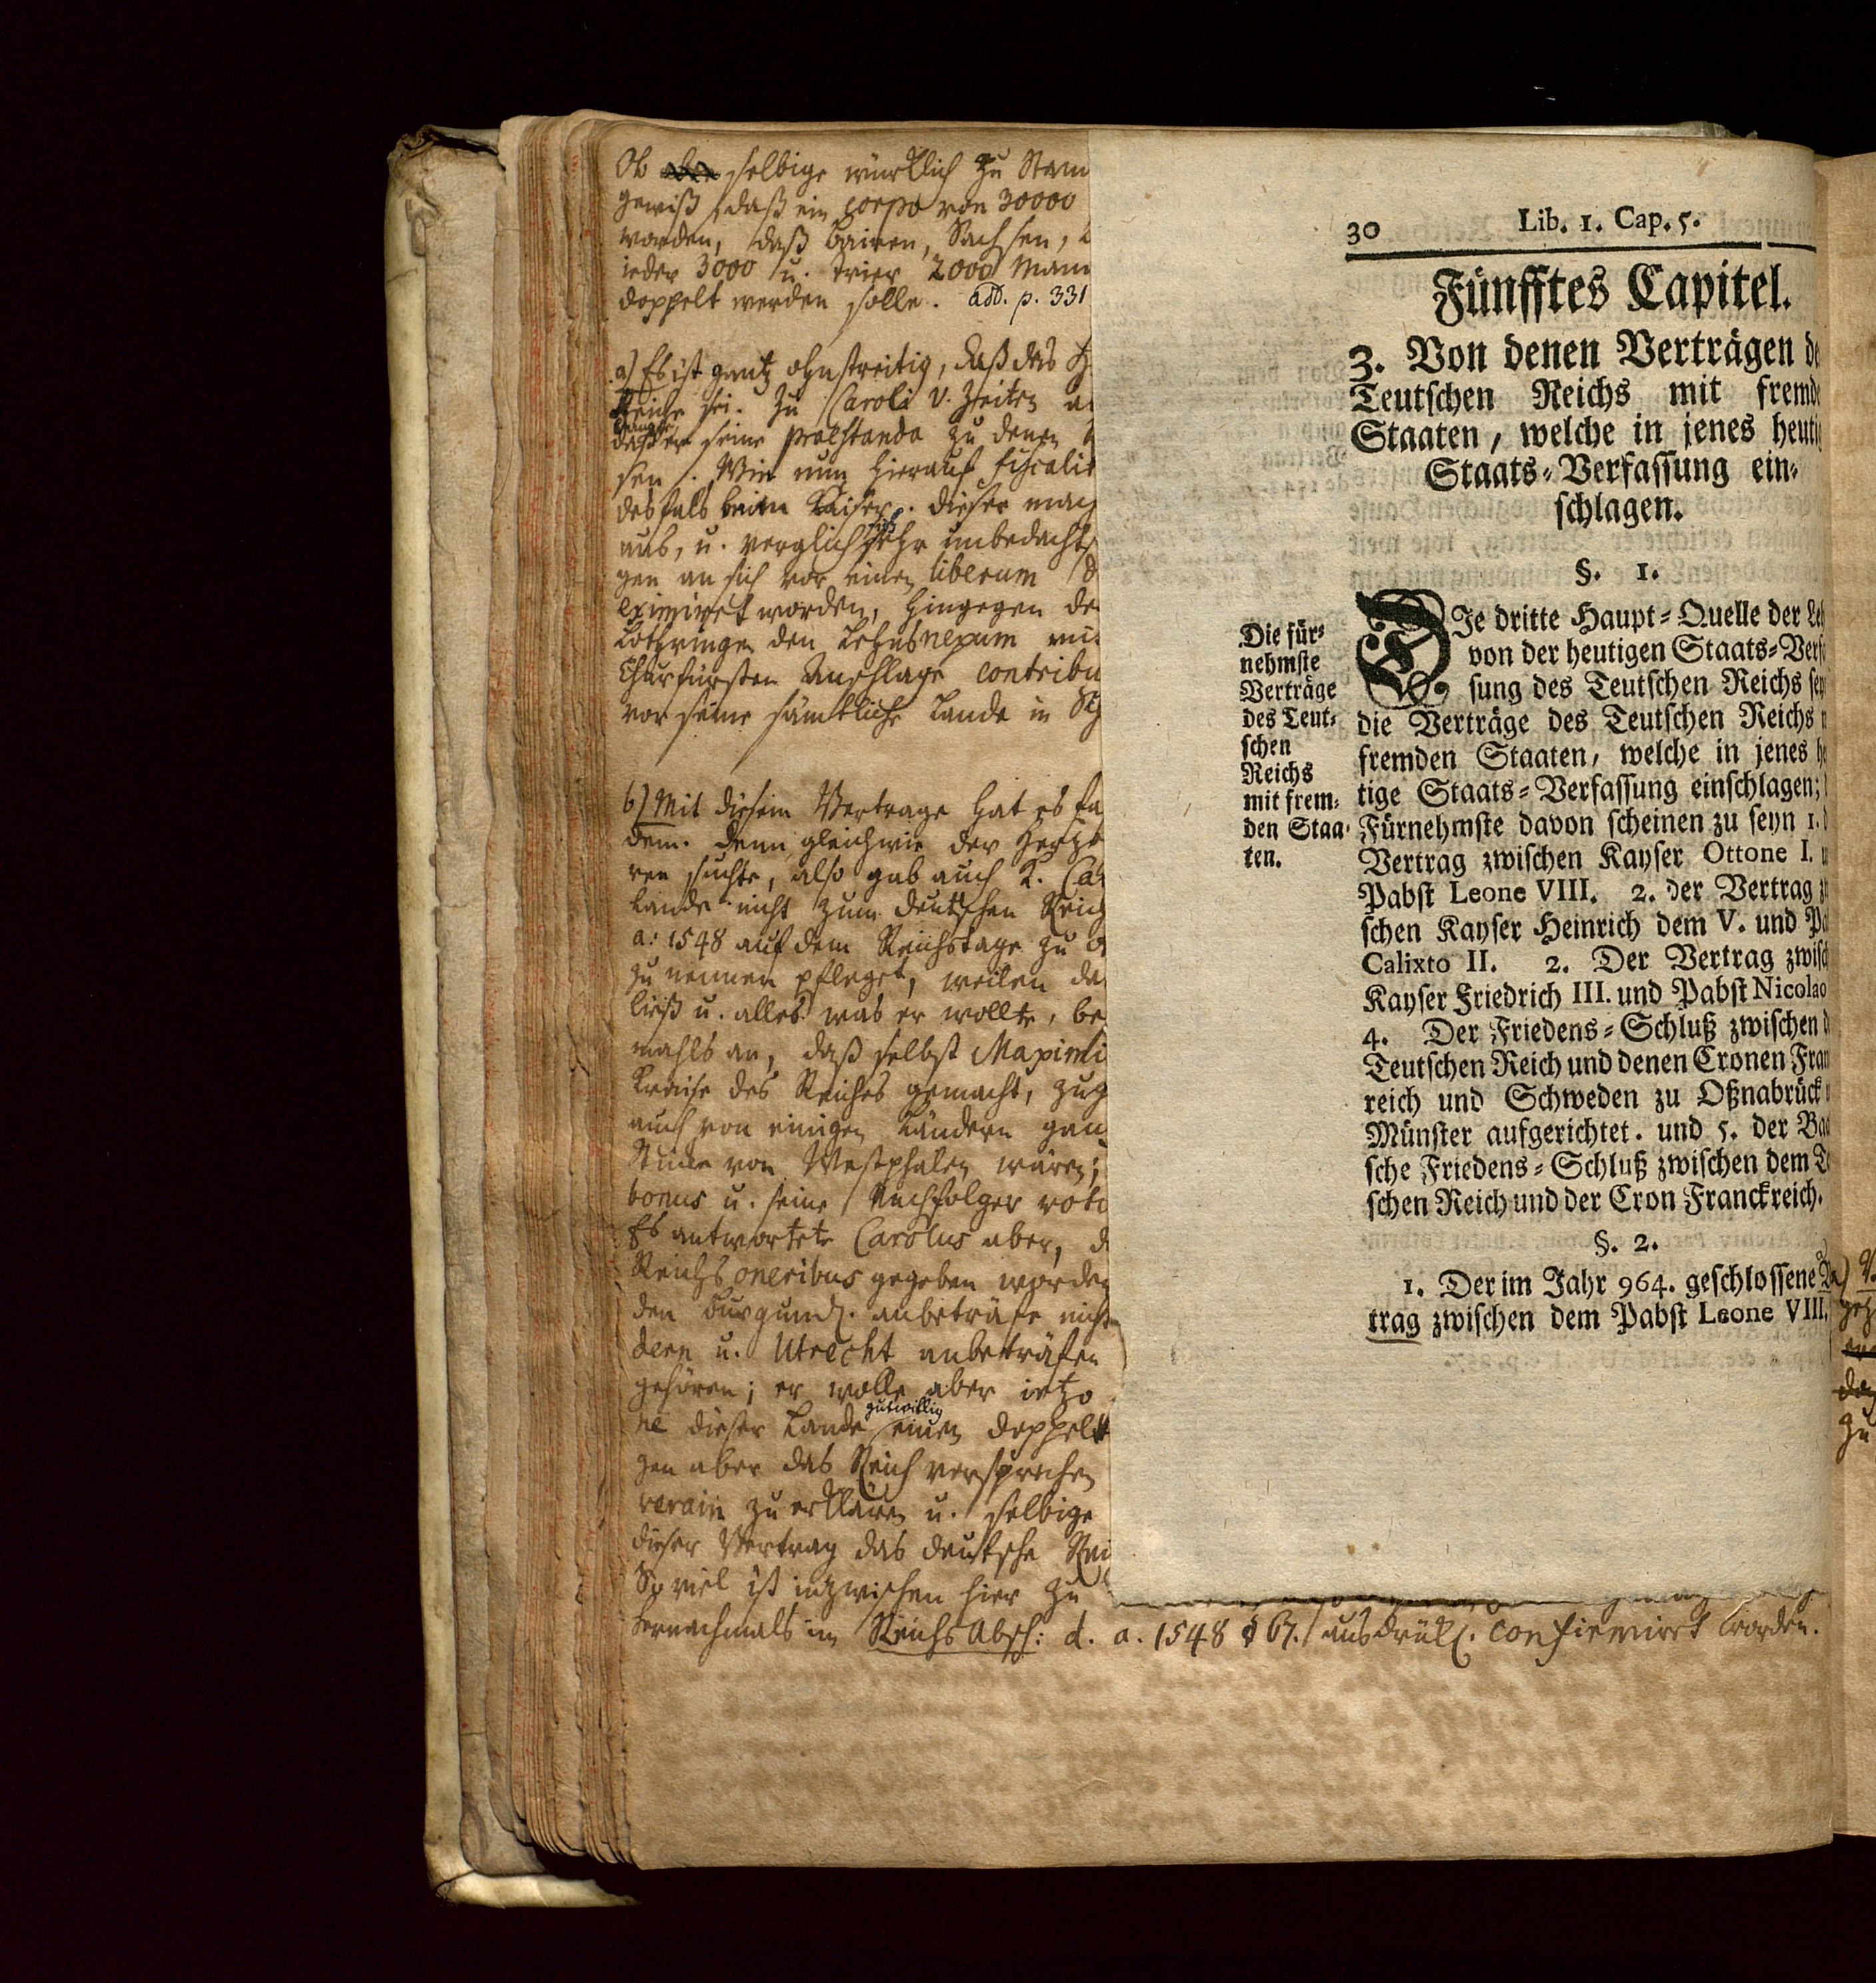 Ob selbige würklich zu Stan
gewiß, daß ein corpo von 30000
worden, daß Bairen, Sachsen,
ieder 3000 u. Trier 2000 Mann
doppelt werden solle. add. p. 331
a) Es ist gantz ohnstreitig, daß das
Reiche sei. Zu Caroli V. Zeiten
daß er seine praestanda zu denen
sen. Wie nun hierauf fiscalis
desfals beim Kaiser. dieser mach
aus, u. verglich sich sehr unbedachts
gen an sich vor einen liberum
eximiret worden, hingegen de
Lothringen den Lehnsnexum
Churfürsten Anschlage contribu
vor seine sämtliche Lande in
b) Mit diesem Vertrage hat es fa
dem. Denn gleichwie der Herzo
ren suchte, also gab auch K. Ca
Lande nicht zum deutschen Reich
a: 1548 auf dem Reichstage zu
zu nennen pfleget, weilen da
ließ u. alles was er wollte, be
mahls an, daß selbst Maximi
Kraise des Reiches gemacht, zug
auch von einigen Ländern gan
Stücke von Westphalen wären;
bonus u. seine Nachfolger
Es antwortete Carolus aber, d
Reichs oneribus gegeben worden
den Burgund. anbeträfe nicht
dern u. Utrecht anbeträfen
gehören; er wolle aber ietzo
ne dieser Lande gutwillig einen doppelt
gen aber das Reich versprechen
verain zu erklären u. selbige
dieser Vertrag das deutsche Rei
So viel ist inzwischen hier zu
hernachmals im Reichs Absch: d. a. 1548 § 67. ausdrükl. confirmirt worden.
30 Lib. 1. Cap. 5.
Fünfftes Capitel.
3. Von denen Verträgen de
Teutschen Reichs mit fremd
Staaten, welche in jenes heuti
Staats-Verfassung ein-
schlagen.
§. 1.
Die für-
nehmste
Verträge
des Teut-
schen
Reichs
mit frem-
den Staa-
ten.
DIe dritte Haupt-Quelle der Leh
von der heutigen Staats-Verf
sung des Teutschen Reichs sey
die Verträge des Teutschen Reichs
fremden Staaten, welche in jenes he
tige Staats-Verfassung einschlagen;
Fürnehmste davon scheinen zu seyn 1.
Vertrag zwischen Kayser Ottone I. u
Pabst Leone VIII. 2. der Vertrag z
schen Kayser Heinrich dem V. und Pa
Calixto II. 2. Der Vertrag zwisch
Kayser Friedrich III. und Pabst Nicolao
4. Der Friedens-Schluß zwischen d
Teutschen Reich und denen Cronen Fran
reich und Schweden zu Oßnabrück
Münster aufgerichtet. und 5. der Baa
sche Friedens-Schluß zwischen dem Te
schen Reich und der Cron Franckreich.
§. 2.
1. Der im Jahr 964. geschlossene
trag zwischen dem Pabst Leone VIII.